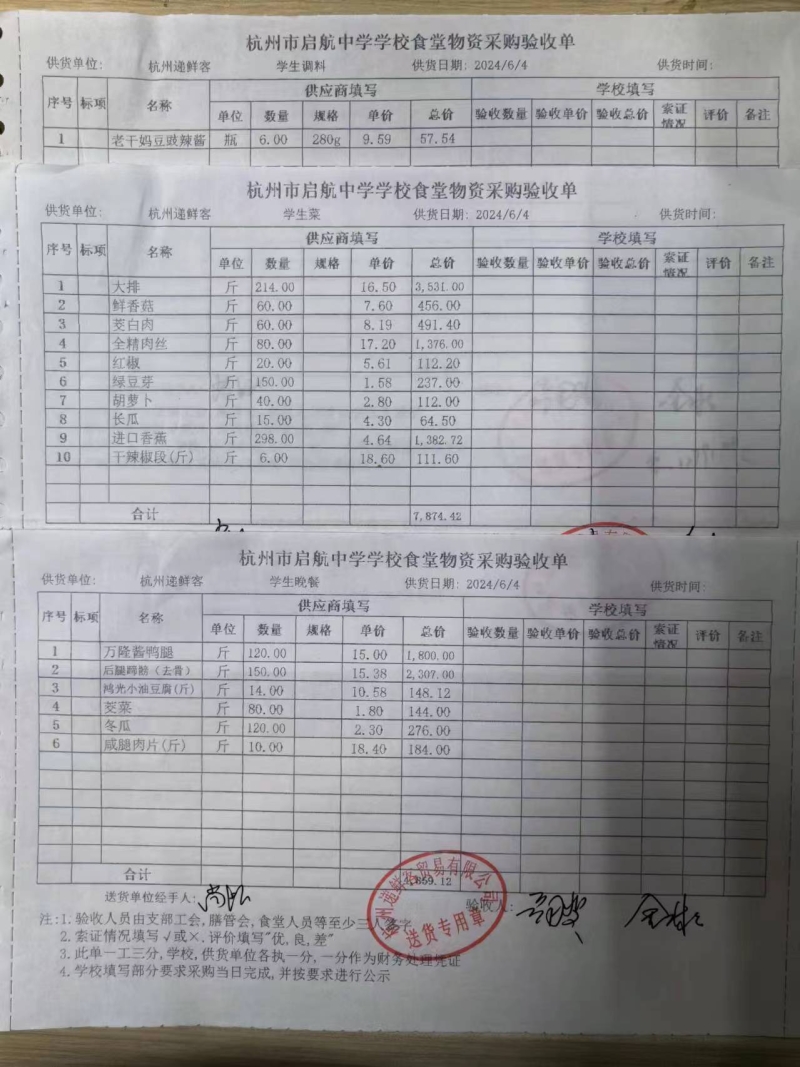 杭州市启航中学学校食堂物资采购验收单
供货单位: 杭州递鲜客 学生调料 供货日期: 2024/6/4 供货时间:
序号 标项 名称 供应商填写 学校填写
单位 数量 规格 单价 总价 验收数量 验收单价 验收总价 索证情况 评价 备注
1 老干妈豆豉辣酱 瓶 6.00 280g 9.59 57.54
杭州市启航中学学校食堂物资采购验收单
供货单位: 杭州递鲜客 学生菜 供货日期: 2024/6/4 供货时间:
序号 标项 名称 供应商填写 学校填写
单位 数量 规格 单价 总价 验收数量 验收单价 验收总价 索证情况 评价 备注
1 大排 斤 214.00 16.50 3,531.00
2 鲜香菇 斤 60.00 7.60 456.00
3 茭白肉 斤 60.00 8.19 491.40
4 全精肉丝 斤 80.00 17.20 1,376.00
5 红椒 斤 20.00 5.61 112.20
6 绿豆芽 斤 150.00 1.58 237.00
7 胡萝卜 斤 40.00 2.80 112.00
8 长瓜 斤 15.00 4.30 64.50
9 进口香蕉 斤 298.00 4.64 1,382.72
10 干辣椒段(斤) 斤 6.00 18.60 111.60
合计 7,874.42
杭州市启航中学学校食堂物资采购验收单
供货单位: 杭州递鲜客 学生晚餐 供货日期: 2024/6/4 供货时间:
序号 标项 名称 供应商填写 学校填写
单位 数量 规格 单价 总价 验收数量 验收单价 验收总价 索证情况 评价 备注
1 万隆酱鸭腿 斤 120.00 15.00 1,800.00
2 后腿蹄髈（去骨） 斤 150.00 15.38 2,307.00
3 鸿光小油豆腐(斤) 斤 14.00 10.58 148.12
4 茭菜 斤 80.00 1.80 144.00
5 冬瓜 斤 120.00 2.30 276.00
6 咸腿肉片(斤) 斤 10.00 18.40 184.00
合计 859.12
送货单位经手人: 验收人:
杭州递鲜客贸易有限公司
送货专用章
注:1. 验收人员由支部工会,膳管会,食堂人员等至少三人签字
2. 索证情况填写√或×.评价填写"优,良,差"
3. 此单一工三分,学校,供货单位各执一分,一分作为财务处理凭证
4. 学校填写部分要求采购当日完成,并按要求进行公示